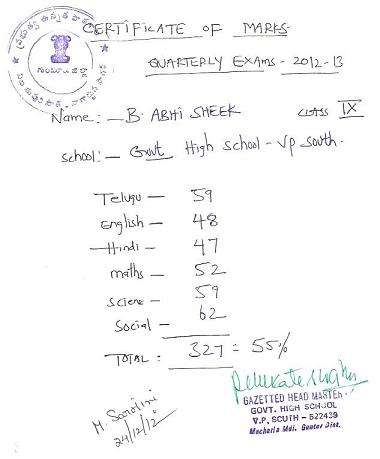 CERTIFICATE OF MARKS-
QUARTERLY EXAMS - 2012-13
Name:- B. ABHI SHEEK CLASS IX
School:- Govt High School - VP South.
Telugu - 59
English - 48
Hindi - 47
maths - 52
Sciene - 59
Social - 62
TOTAL: 327 = 55%
M. Sarojini
24/12/12
GAZETTED HEAD MASTER
GOVT. HIGH SCHOOL
V.P. SOUTH - 522439
Macherla Mdl. Guntur Dist.